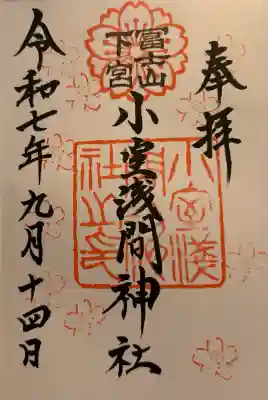 奉拝
富士山
下宮
小室浅間神社
令和七年九月十四日